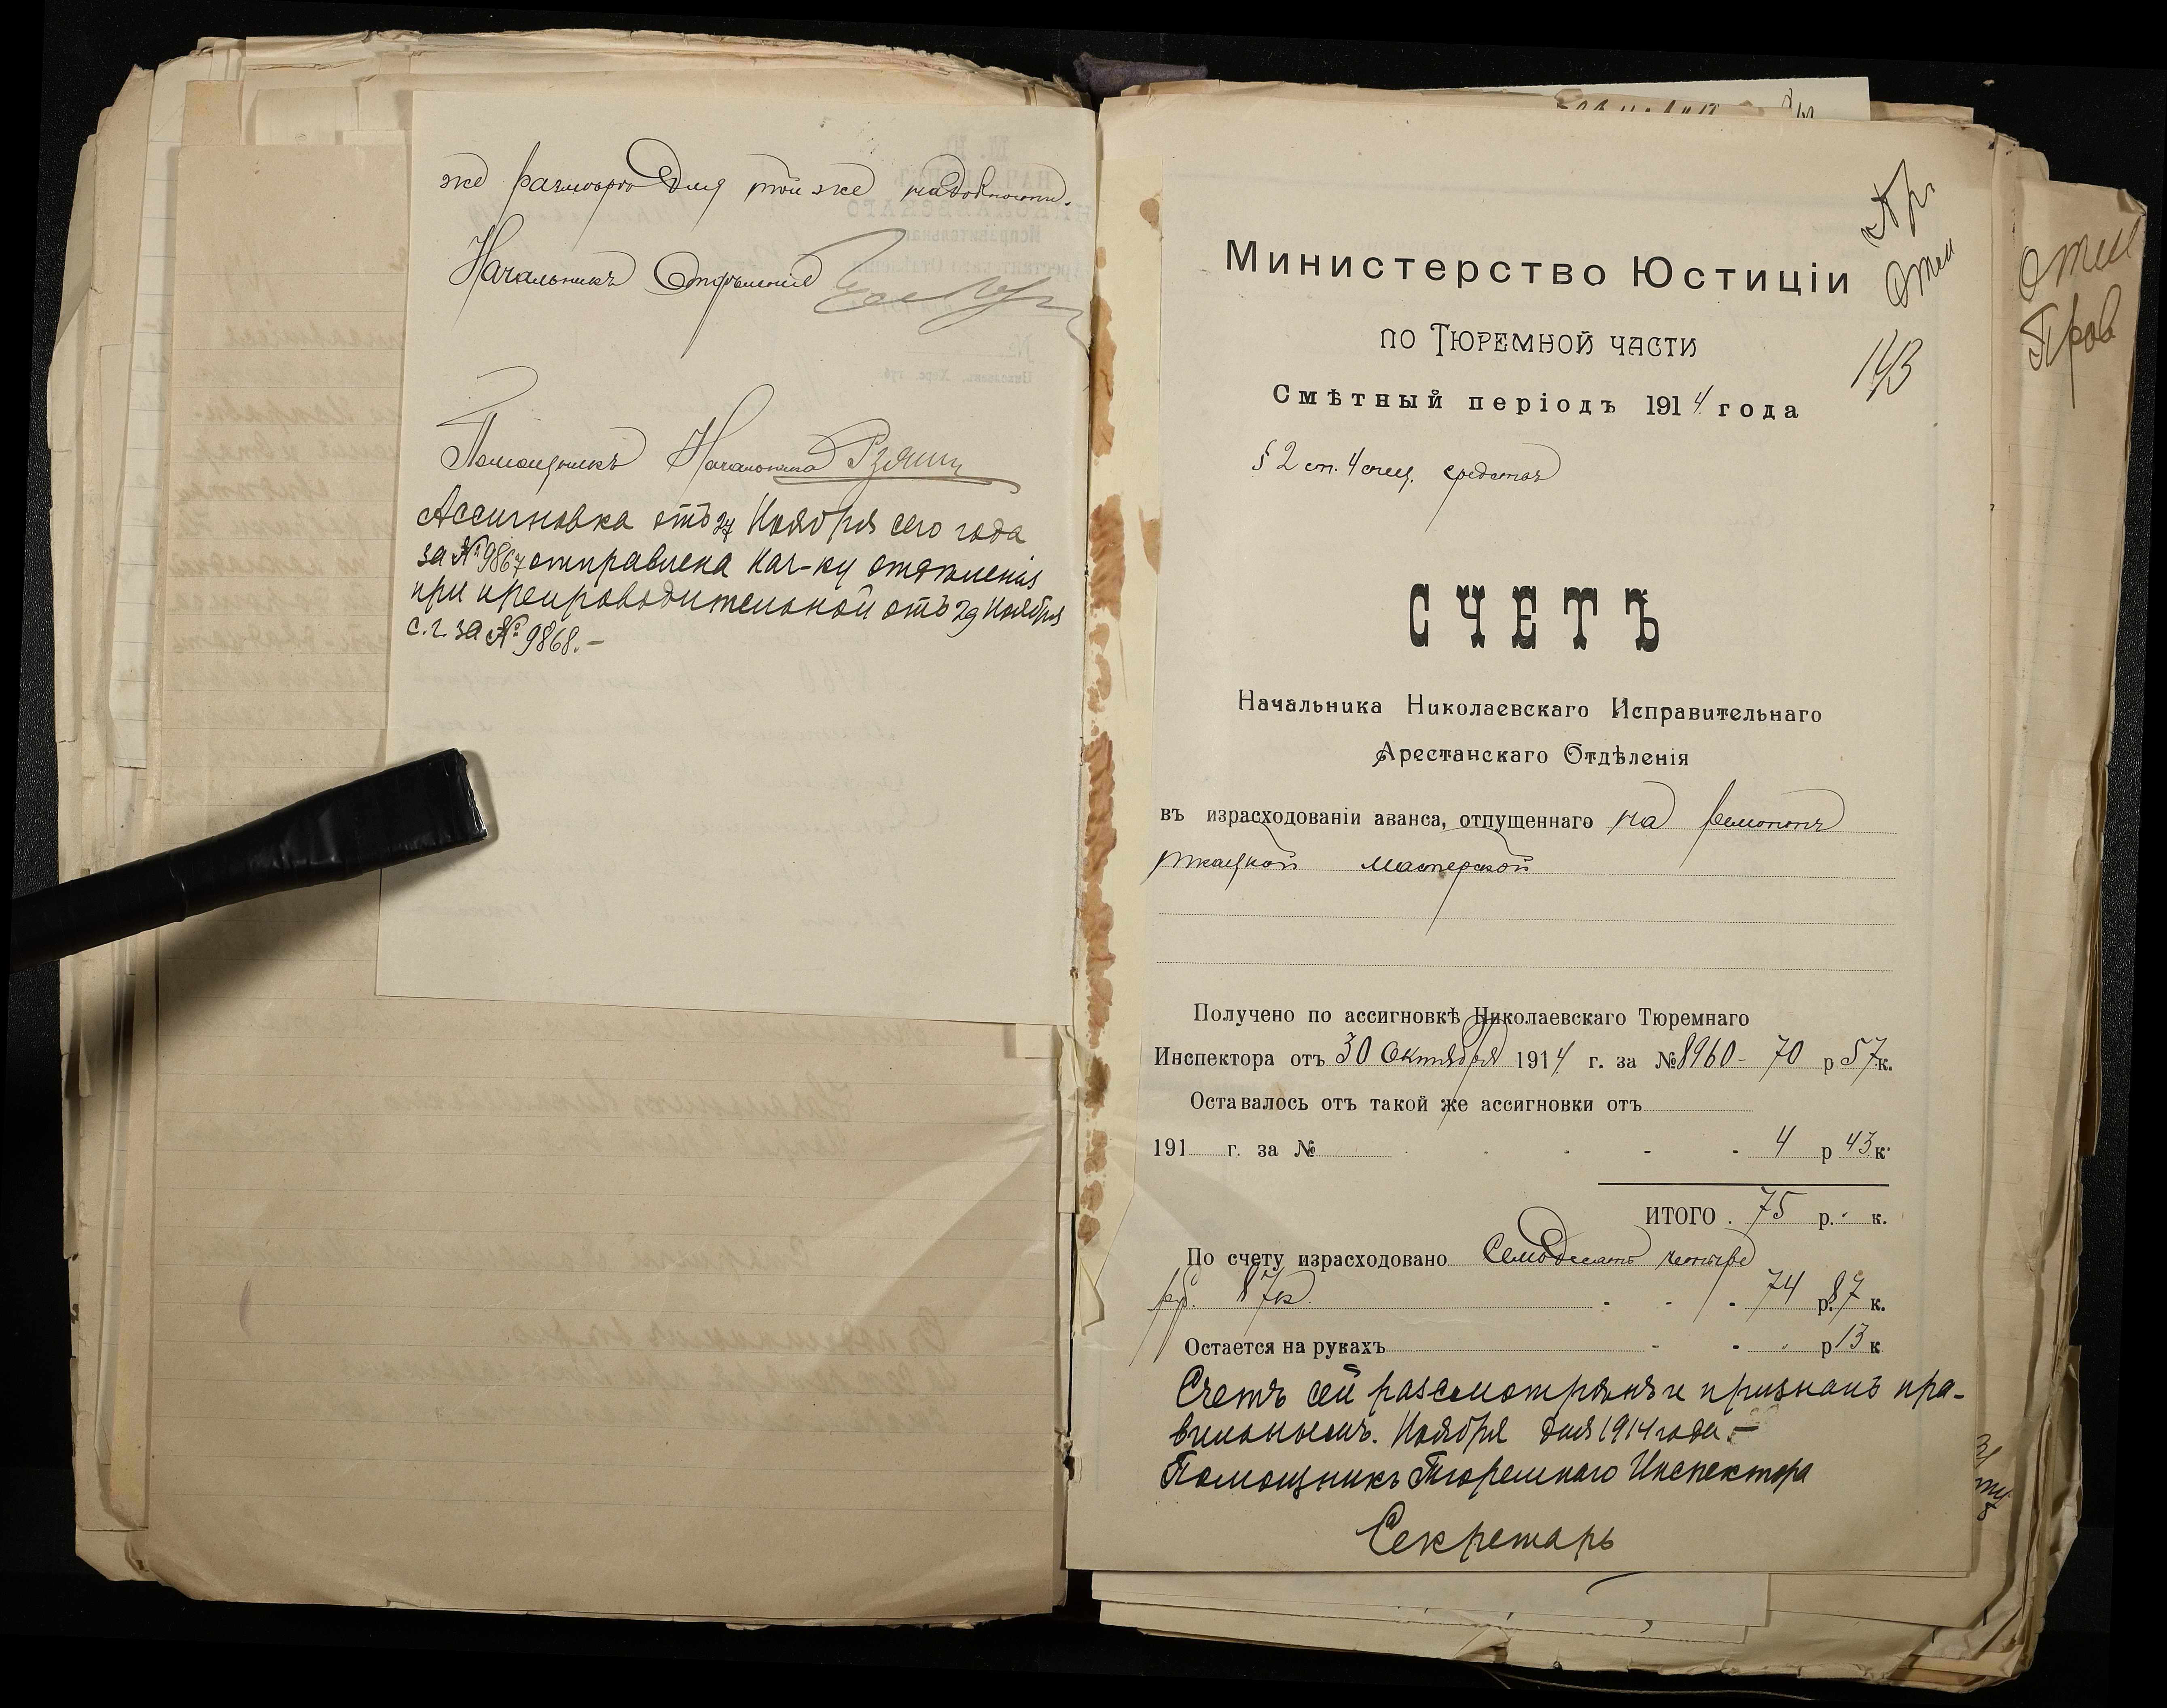 же размѣрѣ для той же надобности.
Начальникъ Отдѣленія
Помощникъ Начальника
Ассигновка отъ 27 Ноября сего года
за № 9867 отправлена нач-ку отдѣленія
при препроводительной отъ 29 Ноября
с.г. за № 9868.-
Министерство Юстиціи
по Тюремной части
Смѣтный періодъ 1914 года
§ 2 ст. 4 спец. средствъ
143
СЧЕТЪ
Начальника Николаевскаго Исправительнаго
Арестанскаго Отдѣленія
въ израсходованіи аванса, отпущеннаго на ремонтъ
ткацкой мастерской
Получено по ассигновкѣ Николаевскаго Тюремнаго
Инспектора отъ 30 Октября 1914 г. за № 8960 - 70 р 57 к.
Оставалось отъ такой же ассигновки отъ
191 г. за № 4 р 43 к.
ИТОГО . 75 р. - к.
По счету израсходовано Семьдесятъ четыре
руб. 87 к. 74 р. 87 к.
Остается на рукахъ р 13 к
Счетъ сей разсмотрѣнъ и признанъ пра-
вильнымъ. Ноября дня 1914 года.-
Помощникъ Тюремнаго Инспектора
Секретарь